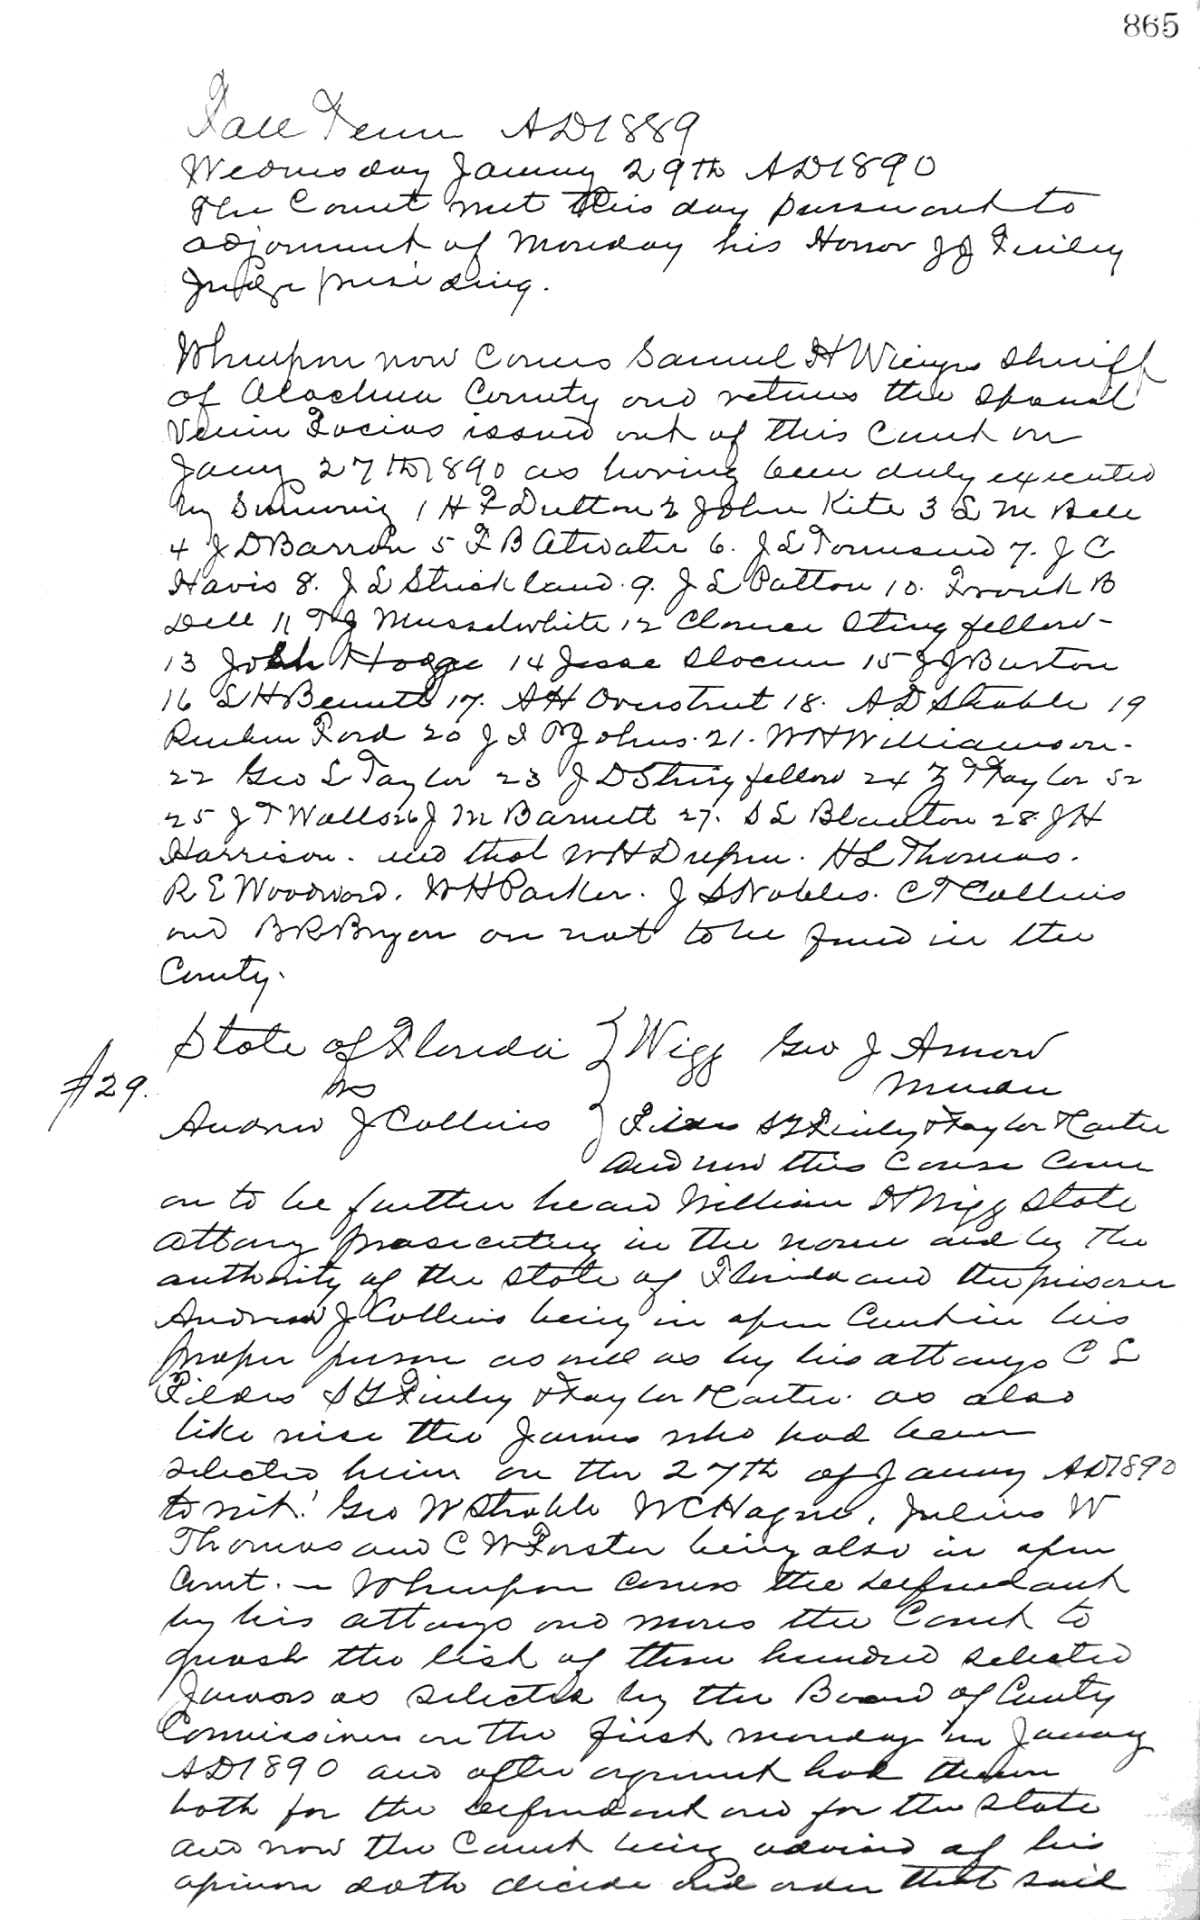 865
Fall Term AD1889
Wednesday January 29th AD1890
The Court met this day pursuant to
adjornment of Monday his Honor JJ Finley
Judge presiding.
Whereupon now comes Samuel H Wienges Sheriff
of Alachua County and returns the Special
Venire Facias issued out of this Court on
Jany 27th 1890 as having been duly executed
by Summonig 1 H F Dutton 2 John Kite 3 L M Bell
4 J D Barron 5 F B Atwater 6. J L Townsend 7. J C
Havis 8. J L Strickland. 9. J L Patton 10. Frank B
Dell 11 T J Musselwhite 12 Clarence Stringfellow-
13 John Hogge 14 Jesse Slocum 15 J J Burton
16 L H Bennett 17. A H Overstreet 18. A D Stroble 19
Reuben Ford 20 J Johns. 21. W H Williamson.
22 Geo L Taylor 23 J D Stringfellow 24 Z T Taylor Sr
25 J T Walls 26 J M Barnett 27. S L Blanton 28 J H
Harrison. and that W H Dupree. H L Thomas.
R E Woodward. W H Parker. J S Nobles. C T Collins
and B R Bryan are not to be found in the
County.
State of Florida } Wigg Geo J Arnow
#29. vs Murder
Andrew J Collins } Fildes S Y Finley & Taylor & Carter
And now this Cause came
on to be further heard William H Wigg State
Attorny prosecuting in the name and by the
authority of the State of Florida and the prisoner
Andrew J Collins being in open Court in his
proper person as well as by his attorneys C L
Fildes S Y Finley & Taylor & Carter. as also
like wise the Jurors who had been
selected herein on the 27th of January AD1890
to wit: Geo W Stroble W C Hague, Julius W
Thomas and C W Forster being also in open
Court. — Whereupon comes the defendant
by his attorneys and moves the Court to
quash the list of three hundred selected
Jurors as selected by the Board of County
Commissioners on the first monday in January
AD1890 and after argument had thereon
both for the defendant and for the State
and now the Court being advised of his
opinion doth decide and order that said